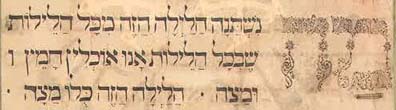 נשתנה הלילה הזה מכל הלילות
שבכל הלילות אנו אוכלין חמץ ו
ומצה · הלילה הזה כלו מצה ·